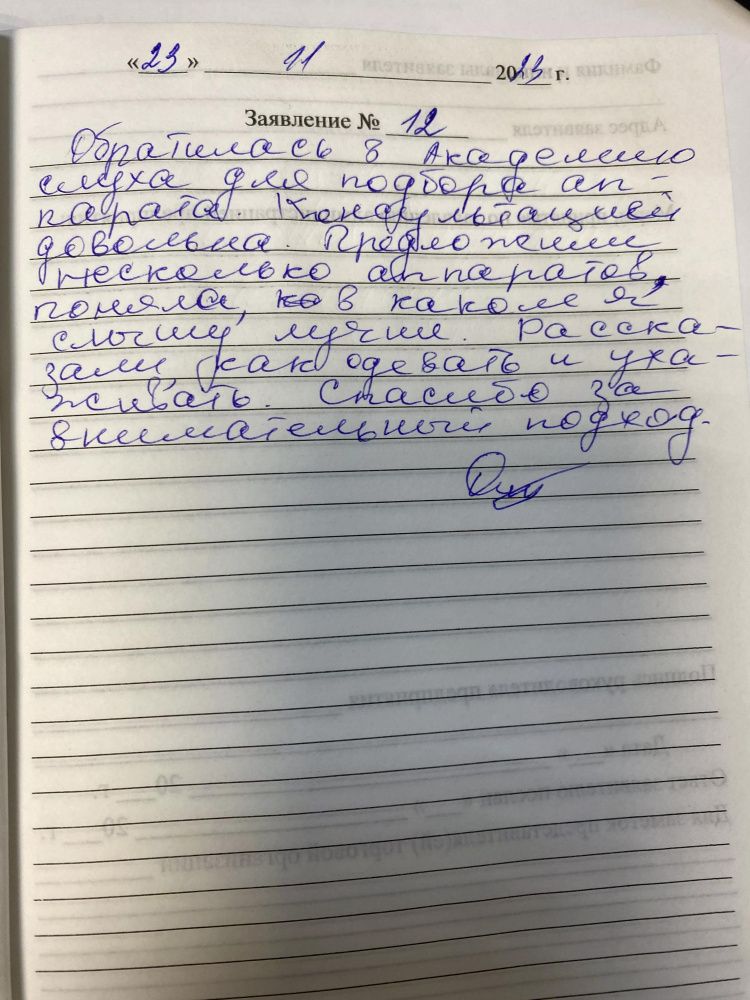 «23» 11 2023 г.
Заявление № 12
Обратилась в Академию
слуха для подбора ап-
парата. Консультацией
довольна. Предложили
несколько аппаратов,
поняла, в каком я
слышу лучше. Расска-
зали, как одевать и уха-
живать. Спасибо за
внимательный подход.